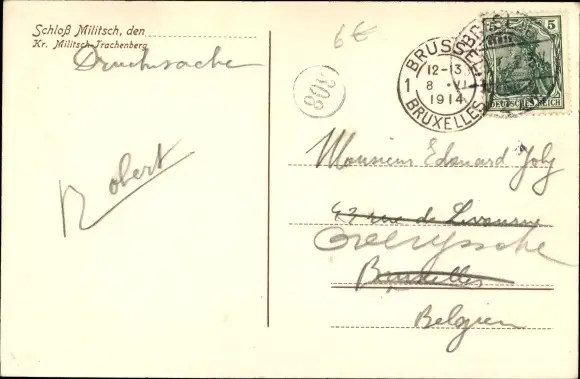 Schloß Militsch, den
Kr. Militsch-Trachenberg
Drucksache
Robert
6€
808
BRUSSEL
12-13
1 8 VI
1914
BRUXELLES
5 5
DEUTSCHES REICH
Monsieur Edouard Joly
43 rue de Livourne
Overyssche
Bruxelles
Belgien